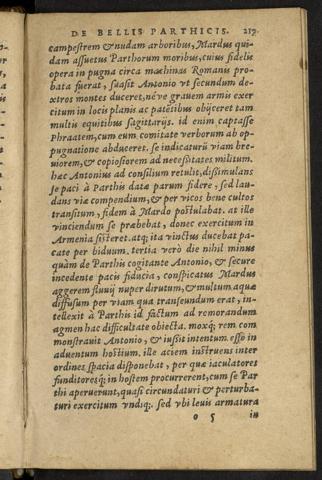 DE BELLIS PARTHICIS. 217
campestrem & nudam arboribus, Mardus qui-
dam assuetus Parthorum moribus, cuius fidelis
opera in pugna circa machinas Romanis pro-
bata fuerat, suasit Antonio vt secundum de-
xtros montes duceret, né ve grauem armis exer
citum in locis planis ac patētibus obijceret tam
multis equitibus sagittarijs. id enim captasse
Phraatem, cum eum comitate verborum ab op-
pugnatione abduceret. Se indicaturū viam bre-
uiorem, & copiosiorem ad necessitates militum.
hæc Antonius ad consilium retulit, dissimulans
se paci à Parthis datæ parum fidere, sed lau-
dans viæ compendium, & per vicos bene cultos
transitum, fidem à Mardo postulabat. at ille
vinciendum se præbebat, donec exercitum in
Armenia sisteret. atq; ita vinctus ducebat pa-
cate per biduum. tertia verò die nihil minus
quàm de Parthis cogitante Antonio, & secure
incedente pacis fiducia, conspicatus Mardus
aggerem fluuij nuper dirutum, & multum aquæ
diffusum per viam qua transeundum erat, in-
tellexit à Parthis id factum ad remorandum
agmen hac difficultate obiecta. moxq; rem com
monstrauit Antonio, & iussit intentum esse in
aduentum hostium. ille aciem instruens inter
ordines spacia disponebat, per quæ iaculatores
funditoresq; in hostem procurrerent, cum se Par
thi aperuerunt, quasi circundaturi & perturba-
turi exercitum vndiq;. sed vbi leuis armatura
o 5 in